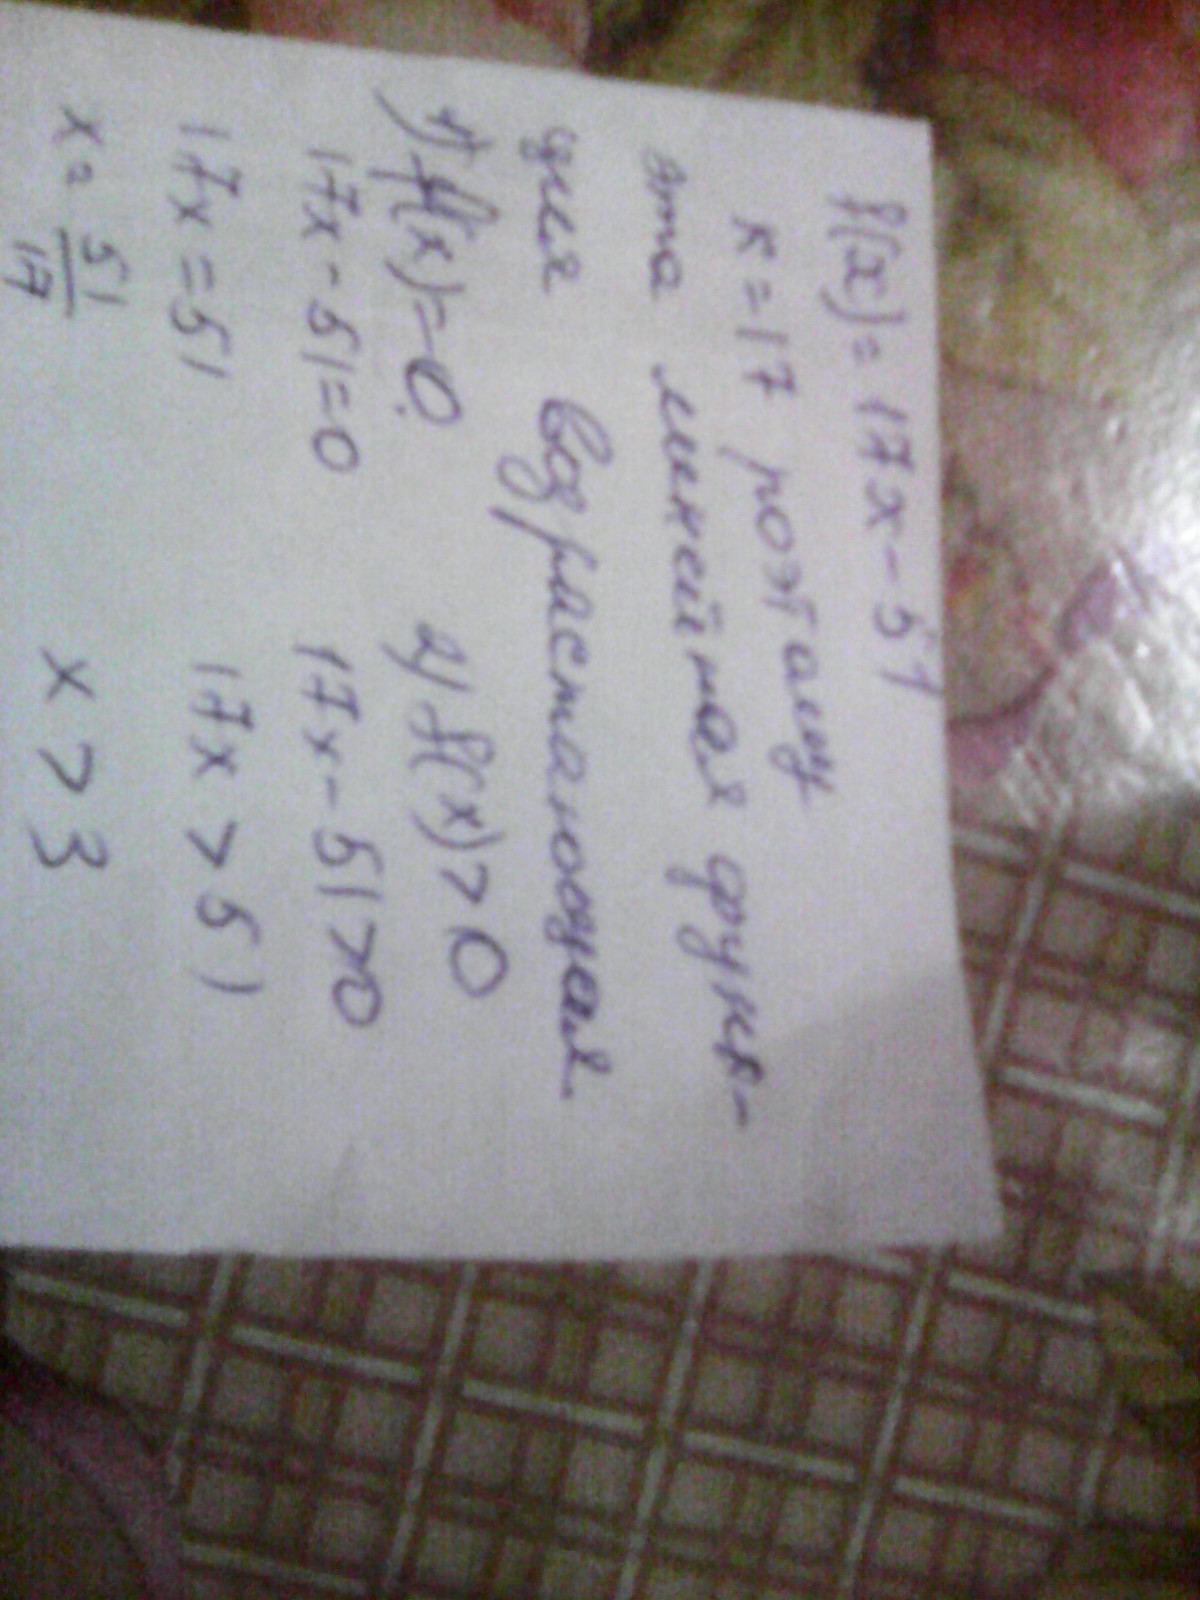 f(x) = 17x - 51
к = 17 поэтому
эта линейная функ-
ция возрастающая.
1) f(x) = 0 2) f(x) > 0
17x - 51 = 0 17x - 51 > 0
17x = 51 17x > 51
x = 51/17 x > 3